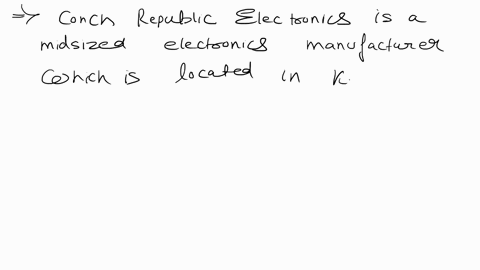 ⇒ Conch Republic Electronics is a
midsized electronics manufacturer
which is located in K